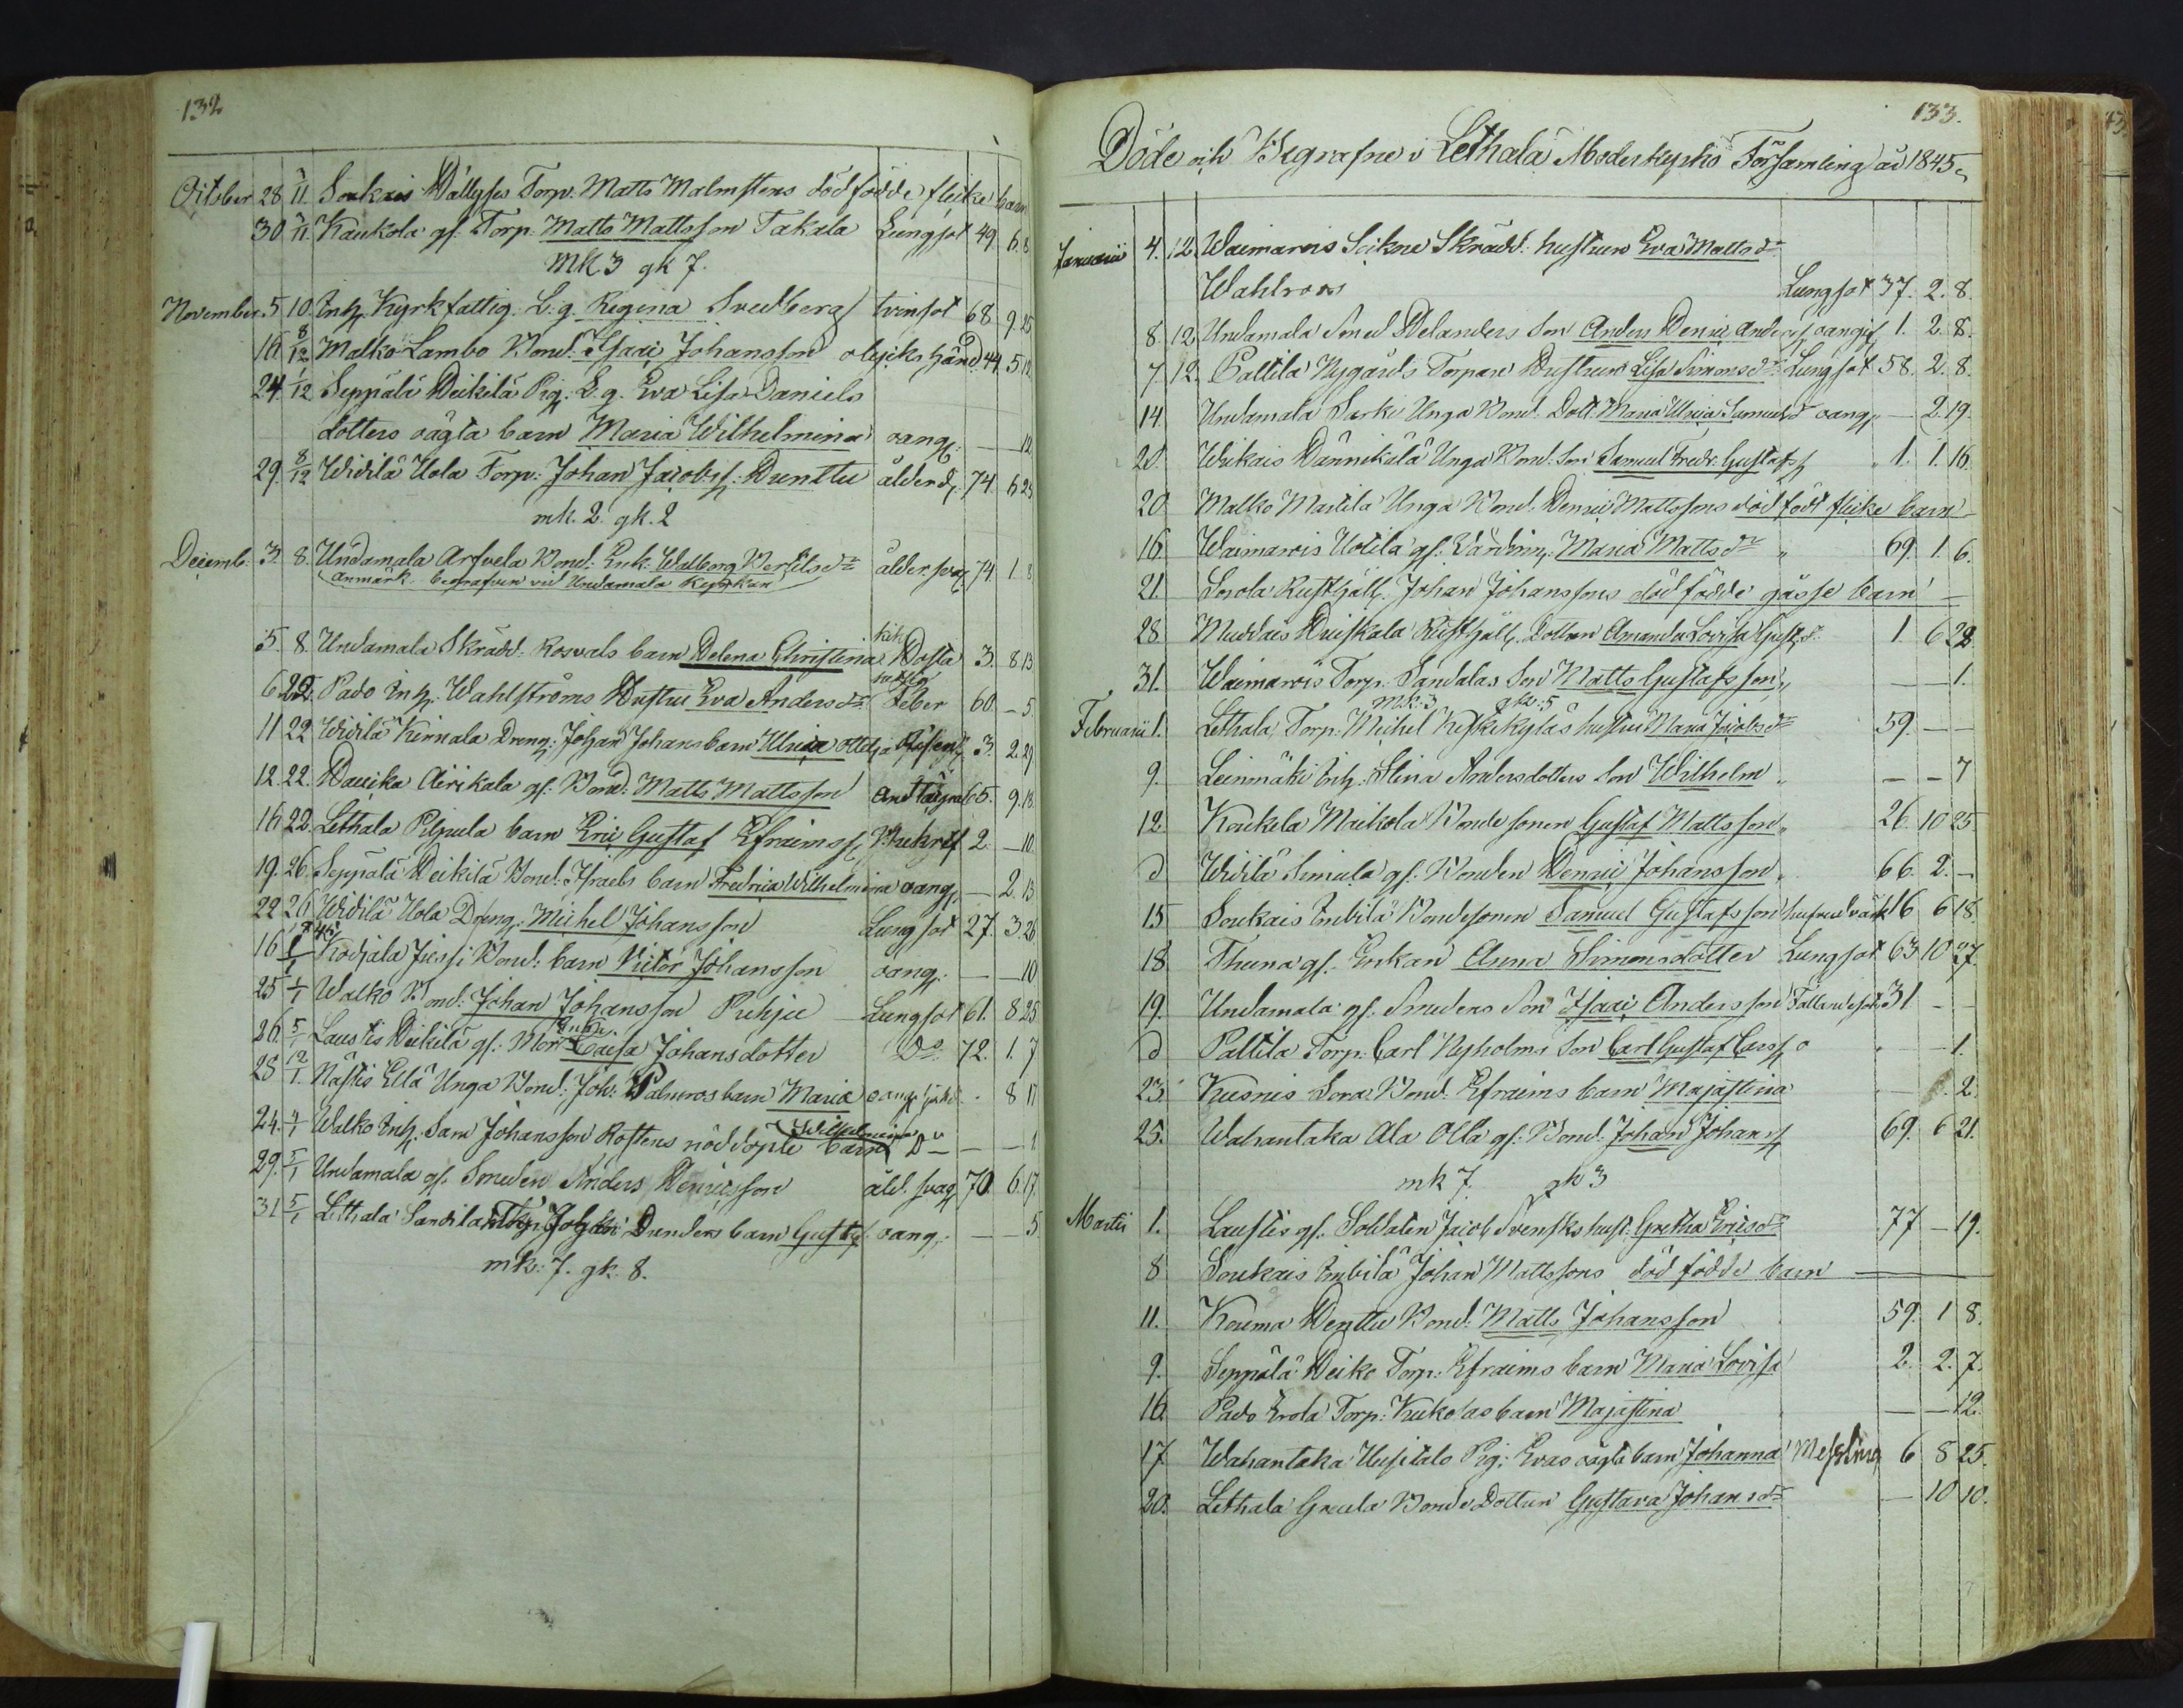 132
October 28 2/11 Soukais Hällyses Torp. Matts Malmstens dödfödde flicke barn
30 2/11 Kaukola gf. Torp. Matts Mattsson Takala Lungsot 49. 6. 8
mk 3 gk 7.
November 5 10. Inh. Kyrkfattig. L.g. Regina Svedberg tvinsot 68 9. 25
16. 8/12 Malko Lambo Bond. Isaac Johansson olyckshänd. 44. 5. 12
24 1/12 Seppälä Heikilä Pig. L.g. Eva Lisa Daniels
dotters oägta barn Maria Wilhelmina oang. — — 12
29. 8/12 Widilä Uola Torp. Johan Jacobss. Dunttu ålderd. 74. 6 23
mk. 2. gk. 2
Decemb. 3. 8. Undamala Arfvela Bond. Enk. Walborg Bertilsdr ålder svag 74. 1. 8
anmärk. begrafven vid Undamala Kyrkan
5. 8. Undamala Skrädd. Rosvals barn Helena Christina kik Hosta 3. 8 13
6. 22. Pado Inh. Wahlströms Hustru Eva Andersdr Feber 60. — 5.
11 22 Widilä Kinnala Dreng. Johan Johans barn Ulrica 3. 2. 29
12. 22. Hauika Airikala gf. Bond. Matts Mattsson Andtäppa 65. 9. 18.
16 22. Lethala barn Eric Gustaf Efraimss. Bukref 2. — 10.
19. 26. Seppälä Heikilä Bond. Israels barn Fredrica Wilhelmina oang. — 2. 13
22 26 Widilä Uola Dreng. Michel Johansson Lungsot 27. 3. 26
16 1/1 45 Kodjala Jussi Bond. barn Victor Johansson oang. — — 10
25 4/1 Walko Bond. Johan Johansson Puhju Lungsot 61. 8 25
26. 5/1 Laustis Heikilä gf. Mor Caisa Johansdotter Do 72. 1. 7
28 12/1. Nästis Ellä Unga Bond. Joh. Palmros barn Maria oang. — 8 11
24. 4/1 Walko Inh. Sam Johansson Rostens nöddöpte barn Wilhelmina Do — — 1
29. 5/1 Undamala gf. Smeden Anders Henricsson åld. svag 70. 6. 17.
31 5/1 Lethala Sandila Torp. Johan Dunders barn Gustaf oang. — — 5.
mk. 7. gk. 8.
133.
Döde och Begrafne i Lethala Moderkyrko Församling år 1845.
Januarii 4. 12. Waimarois Seikne Skrädd. hustrun Eva Mattsdr
Wahlroos Lungsot 37. 2. 8.
8. 12 Undamala Smed Helanders Son Anders Henric Anderss. oangif. 1. 2. 8.
7. 12. Paltila Nygårds Torpare Hustrun Lisa Simonsdr Lungsot 58. 2. 8.
14. Undamala Sarki Unga Bond. Dott. Maria Ulrica Samuelsdr oang. — 2. 19.
20. Weikais Dännikälä Unga Bond. Son Samuel Fredr. Gustafss. " 1. 1. 16.
20 Malko Martila Unga Bond. Henric Mattssons dödfödt flicke barn
16. Waimarois Uotila gf. Värdinn. Maria Mattsdr " 69. 1. 6.
21. Sorola Rusthåll. Johan Johanssons dödfödde gosse barn —
28. Muddais Huiskala Rusthåll. Dottren Amanda Lovisa Gust.dr 1. 6 28
31. Waimarois Torp. Sandalas Son Matts Gustafsson " — — 1.
mk. 3 gk. 5
Februarii 1. Lethala Torp. Michel Keskikyläs hustru Maria Jacobsdr 59. — —
9. Leinmäki Inh. Stina Andersdotters Son Wilhelm " — — 7
12. Koukela Maikola Bondesonen Gustaf Mattsson " 26. 10 25.
d Widilä Simula gf. Bonden Henric Johansson " 66. 2. —
15. Soukais Imbilä Bondesonen Samuel Gustafsson hufvudvärk 16 6 18
18. Thuna gf. Enkan Anna Simonsdotter Lungsot 63 10 27.
19. Undamala gf. Smedens Son Isaac Andersson Fallandesot 31 — —
d Paltila Torp. Carl Nyholms Son Carl Gustaf Carss. — — 1.
23. Kusnis Sora Bond. Efraims barn Majastina — — 2.
25. Wahantaka Ala Olla gf. Bond. Johan Johanss. 69. 6 21.
mk 7. gk 3
Martii 1. Laustis gf. Soldaten Jacob Svensks hust. Gretha Ericsdr 77 — 19.
8 Soukais Imbilä Johan Mattssons dödfödde barn —
11. Kouma Henttu Bond. Matts Johansson 59. 1 8.
9. Seppälä Heiko Torp. Efraims barn Maria Lovisa 2. 2. 7.
16. Pado Erola Torp. Kukolas barn Majastina — — 12.
17. Wahantaka Uusitalo Pig. Evas oägta barn Johanna Messling 6 8 25.
20. Lethala Greula Bonde Dottren Gustava Johansdr — 10 10.